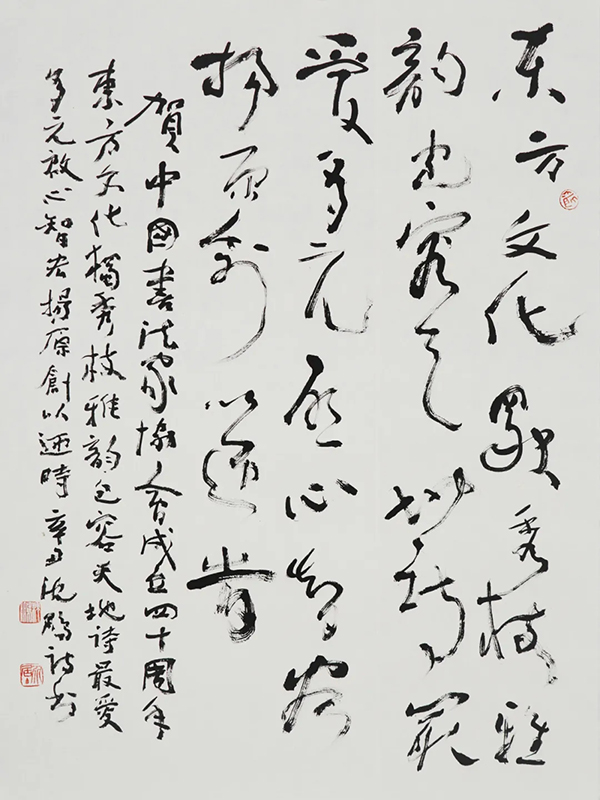 东方文化獨秀枝雅
韵包容天地詩最
愛多元启心智宏
揚原創以適時
賀中國書法家協會成立四十周年
東方文化獨秀枝雅韵包容天地詩最愛
多元啟心智宏揚原創以適時辛丑沈鵬詩書